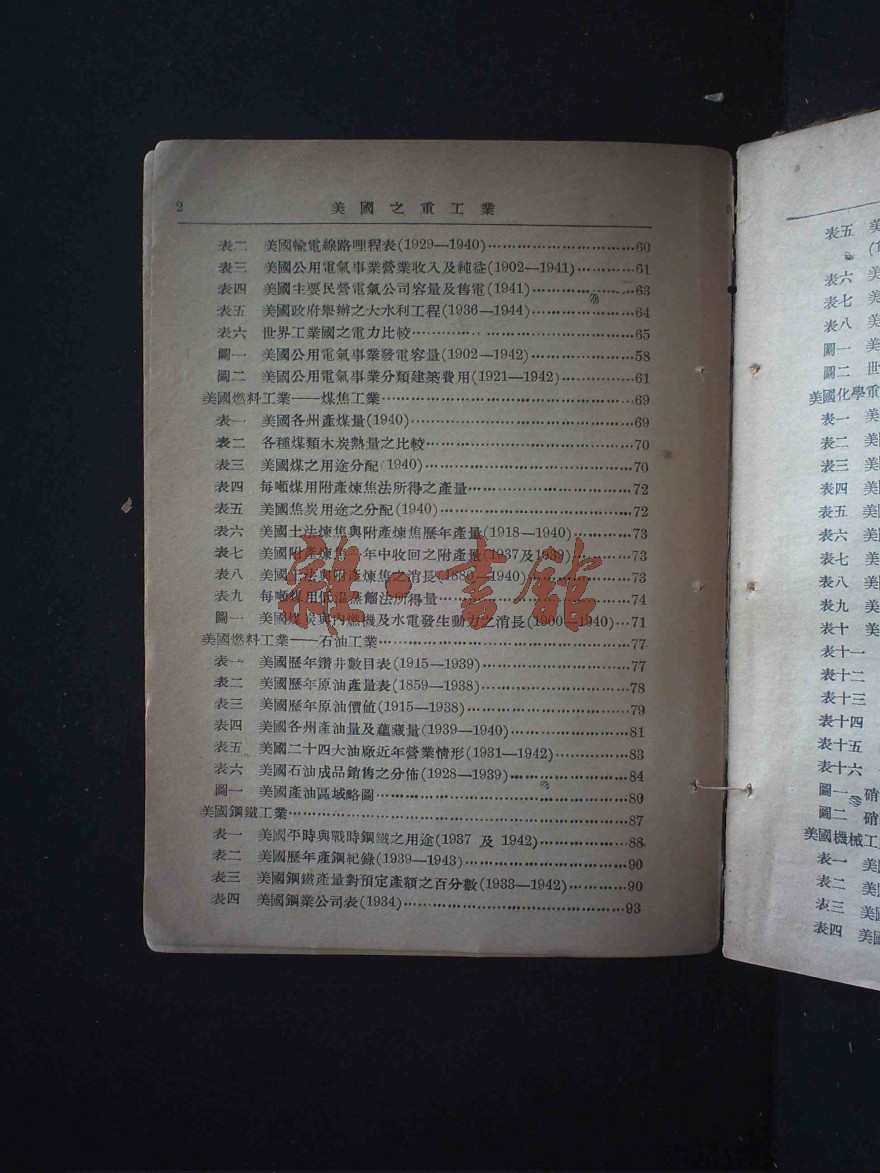 2 美國之重工業
表二 美國輸電線路哩程表(1929—1940)…………60
表三 美國公用電氣事業營業收入及純益(1902—1941)…………61
表四 美國主要民營電氣公司容量及售電(1941)…………63
表五 美國政府舉辦之大水利工程(1936—1944)…………64
表六 世界工業國之電力比較…………65
圖一 美國公用電氣事業發電容量(1902—1942)…………58
圖二 美國公用電氣事業分類建築費用(1921—1942)…………61
美國燃料工業——煤焦工業…………69
表一 美國各州產煤量(1940)…………69
表二 各種煤類木炭熱量之比較…………70
表三 美國煤之用途分配(1940)…………70
表四 每噸煤用附產煉焦法所得之產量…………72
表五 美國焦炭用途之分配(1940)…………72
表六 美國土法煉焦與附產煉焦歷年產量(1918—1940)…………73
表七 美國附產煉焦一年中收回之附產量(1937及1939)…………73
表八 美國土法與附產煉焦之消長(1880—1940)…………73
表九 每噸煤用低溫蒸餾法所得量…………74
圖一 美國煤炭與內燃機及水電發生動力之消長(1900—1940)…71
美國燃料工業——石油工業…………77
表一 美國歷年鑽井數目表(1915—1939)…………77
表二 美國歷年原油產量表(1859—1938)…………78
表三 美國歷年原油價値(1915—1938)…………79
表四 美國各州產油量及蘊藏量(1939—1940)…………81
表五 美國二十四大油廠近年營業情形(1931—1942)…………83
表六 美國石油成品銷售之分佈(1928—1939)…………84
圖一 美國產油區域略圖…………80
美國鋼鐵工業…………87
表一 美國平時與戰時鋼鐵之用途(1937 及 1942)…………88
表二 美國歷年產鋼紀錄(1939—1943)…………90
表三 美國鋼鐵產量對預定產額之百分數(1933—1942)…………90
表四 美國鋼業公司表(1934)…………93
雜·書館
表五 美
(1
表六 美
表七 美
表八 美
圖一 美
圖二 世
美國化學重
表一 美
表二 美
表三 美
表四 美
表五 美
表六 美
表七 美
表八 美
表九 美
表十 美
表十一
表十二
表十三
表十四
表十五
表十六
圖一 硝
圖二 硝
美國機械工
表一 美
表二 美
表三 美
表四 美